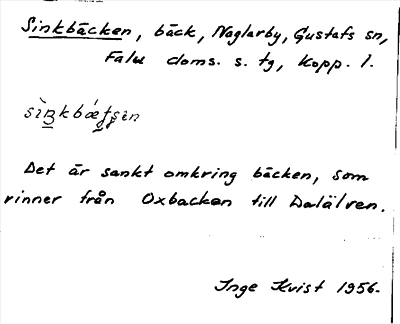 Sinkbäcken, bäck, Naglarby, Gustafs sn,
Falu doms. s. tg, Kopp. l.
Det är sankt omkring bäcken, som
rinner från Oxbacken till Dalälven.
Inge Kvist 1956.